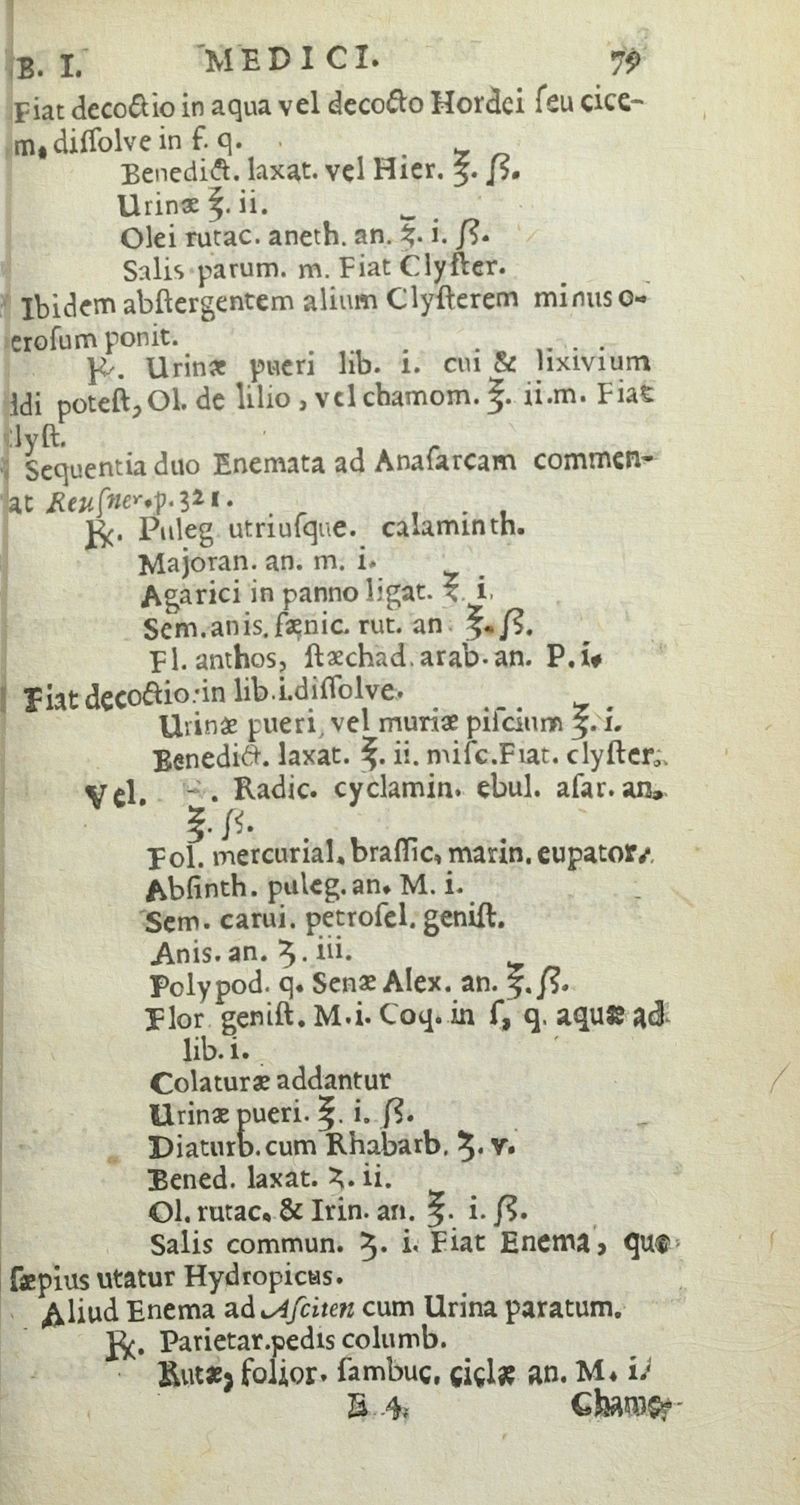 B. I. MEDICI. 79
Fiat decoctio in aqua vel decocto Hordei ſeu cice-
m, diſſolve in ſ. q.
Benedict. laxat. vel Hier. ℥. ß.
Urinæ ℥. ii.
Olei rutac. aneth. an. ℥. i. ß.
Salis parum. m. Fiat Clyſter.
Ibidem abſtergentem alium Clyſterem minus o-
eroſum ponit.
℞. Urinæ pueri lib. i. cui & lixivium
ddi poteſt, Ol. de lilio, vel chamom. ℥. ii.m. Fiat
lyſt.
Sequentia duo Enemata ad Anaſarcam commen-
at Reuſner.p.321.
℞. Puleg utriuſque. calaminth.
Majoran. an. m. i.
Agarici in panno ligat. ℥. i.
Sem. anis. fænic. rut. an. ℥. ß.
Fl. anthos, ſtæchad. arab. an. P. i.
Fiat decoctio: in lib.i.diſſolve.
Urinæ pueri, vel muriæ piſcium ℥. i.
Benedict. laxat. ℥. ii. miſc.Fiat. clyſter.
Vel. . Radic. cyclamin. ebul. aſar. an.
℥. ß.
Fol. mercurial. braſſic, marin. eupator.
Abſinth. puleg. an. M. i.
Sem. carui. petroſel. geniſt.
Anis. an. ʒ. iii.
Polypod. q. Senæ Alex. an. ℥. ß.
Flor geniſt. M.i. Coq. in ſ, q. aquæ ad
lib. i.
Colaturæ addantur
Urinæ pueri. ℥. i. ß.
Diaturb. cum Rhabarb. ʒ. v.
Bened. laxat. ʒ. ii.
Ol. rutac. & Irin. an. ℥. i. ß.
Salis commun. ʒ. i. Fiat Enema, quo
ſæpius utatur Hydropicus.
Aliud Enema ad Aſciten cum Urina paratum.
℞. Parietar.pedis columb.
Rutæ, folior. ſambuc, ciclæ an. M. i.
E 4.